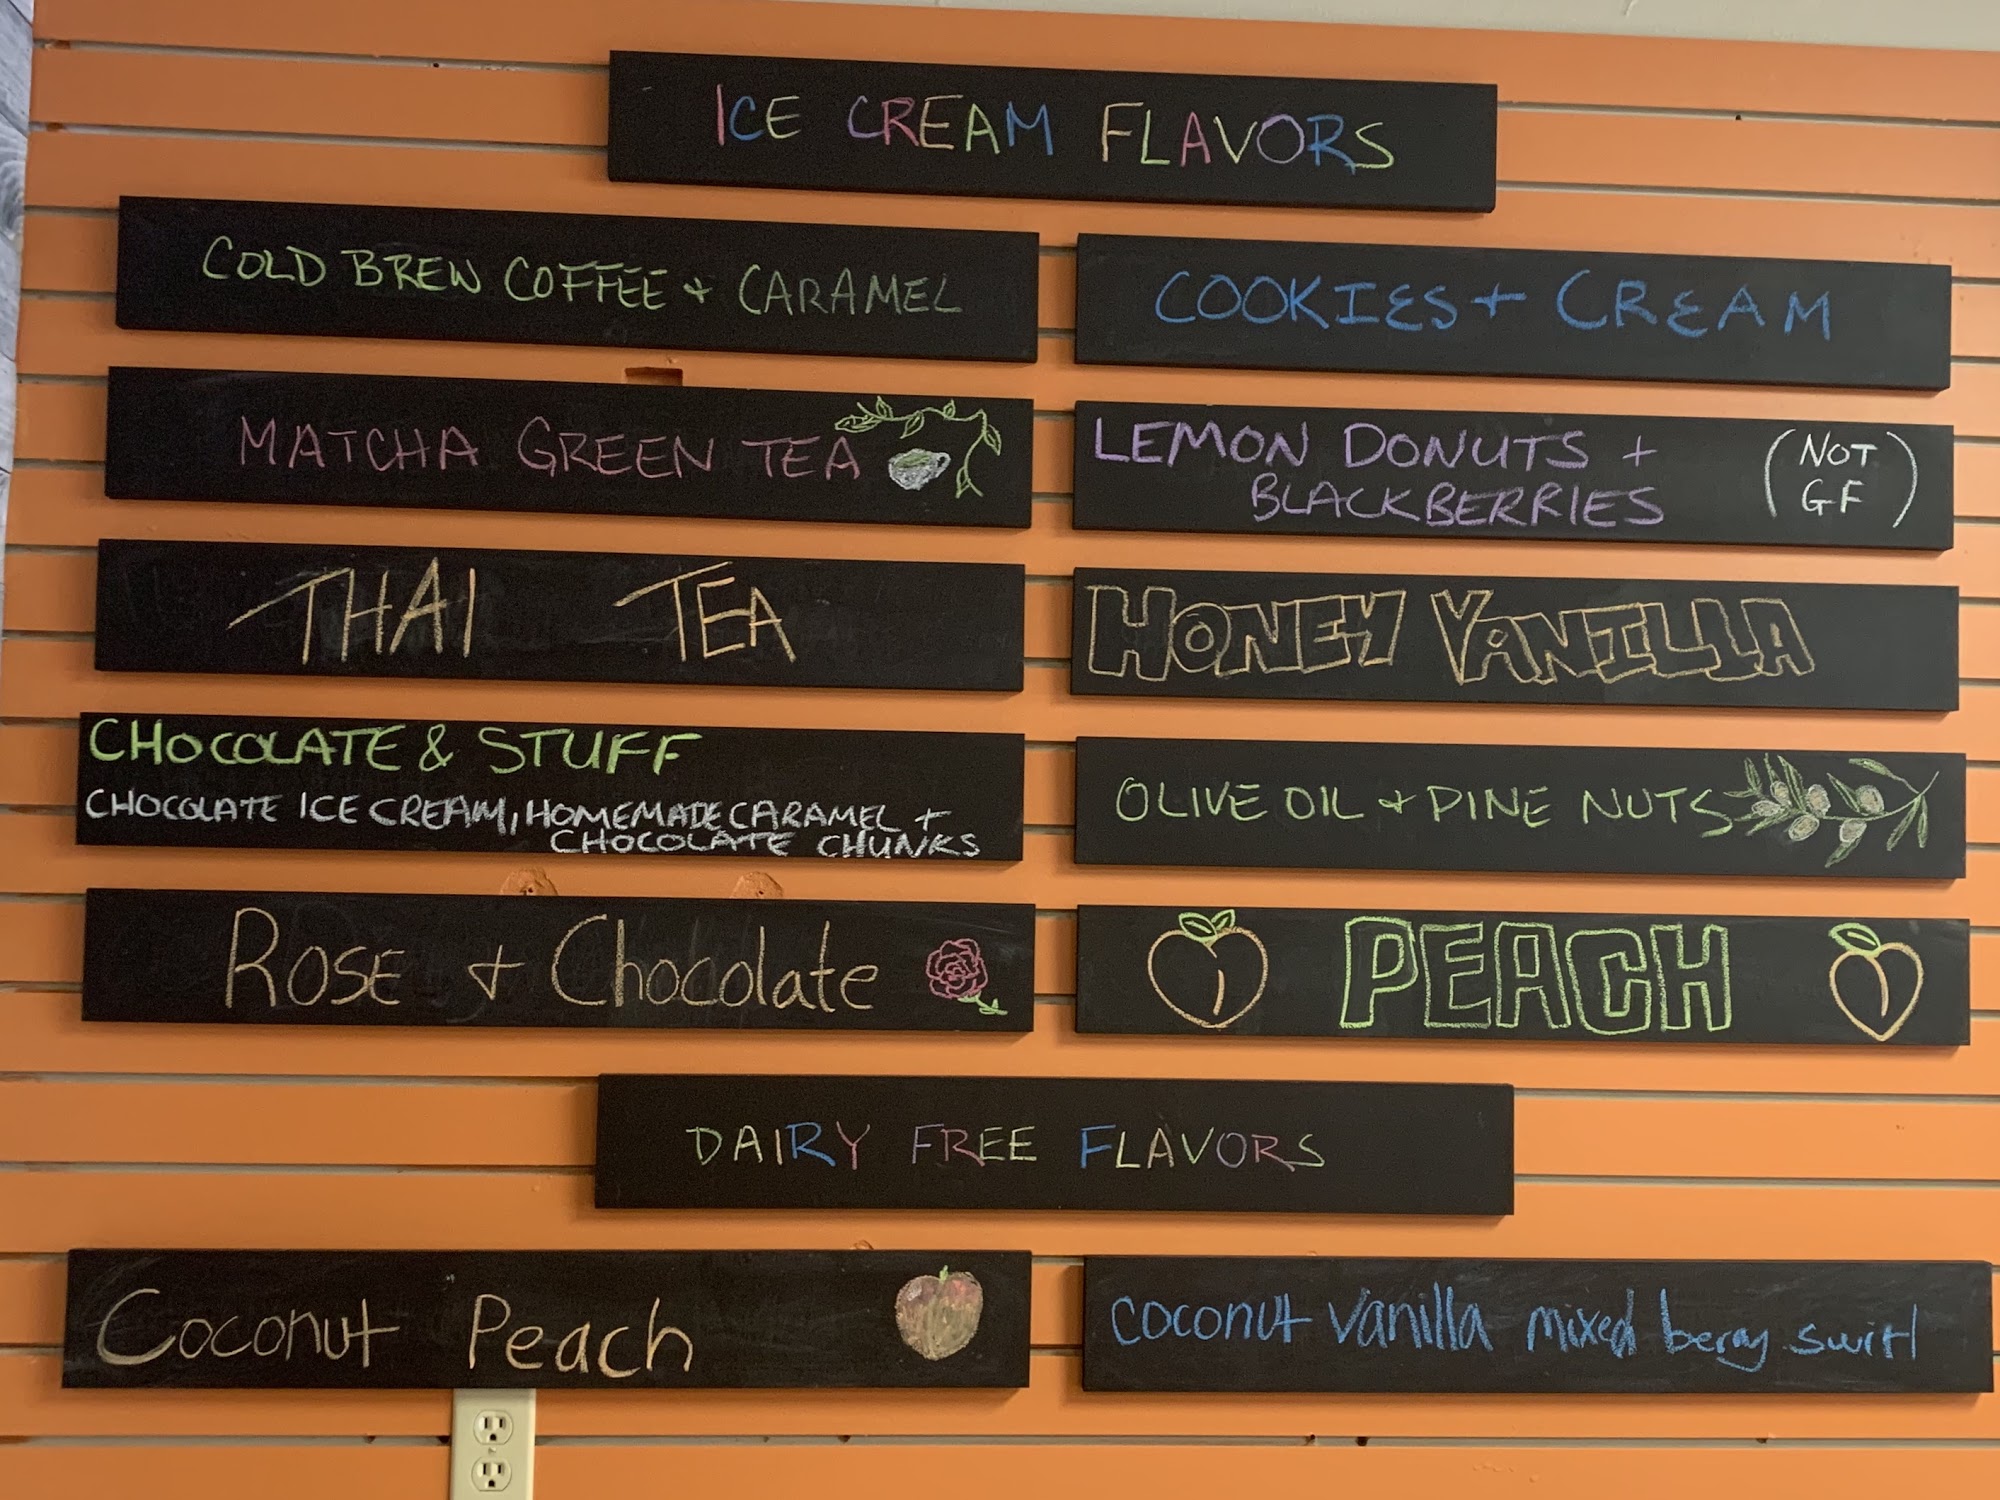 ICE CREAM FLAVORS
COLD BREW COFFEE + CARAMEL
COOKIES + CREAM
MATCHA GREEN TEA
LEMON DONUTS +
BLACKBERRIES
(NOT
GF)
THAI TEA
HONEY VANILLA
CHOCOLATE & STUFF
CHOCOLATE ICE CREAM, HOMEMADE CARAMEL +
CHOCOLATE CHUNKS
OLIVE OIL + PINE NUTS
ROSE + Chocolate
PEACH
DAIRY FREE FLAVORS
Coconut Peach
coconut vanilla mixed berry swirl